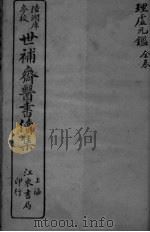 理虛元鑑 全卷
陸潤庠
參校
世補齋醫書
上海
江東書局
印行